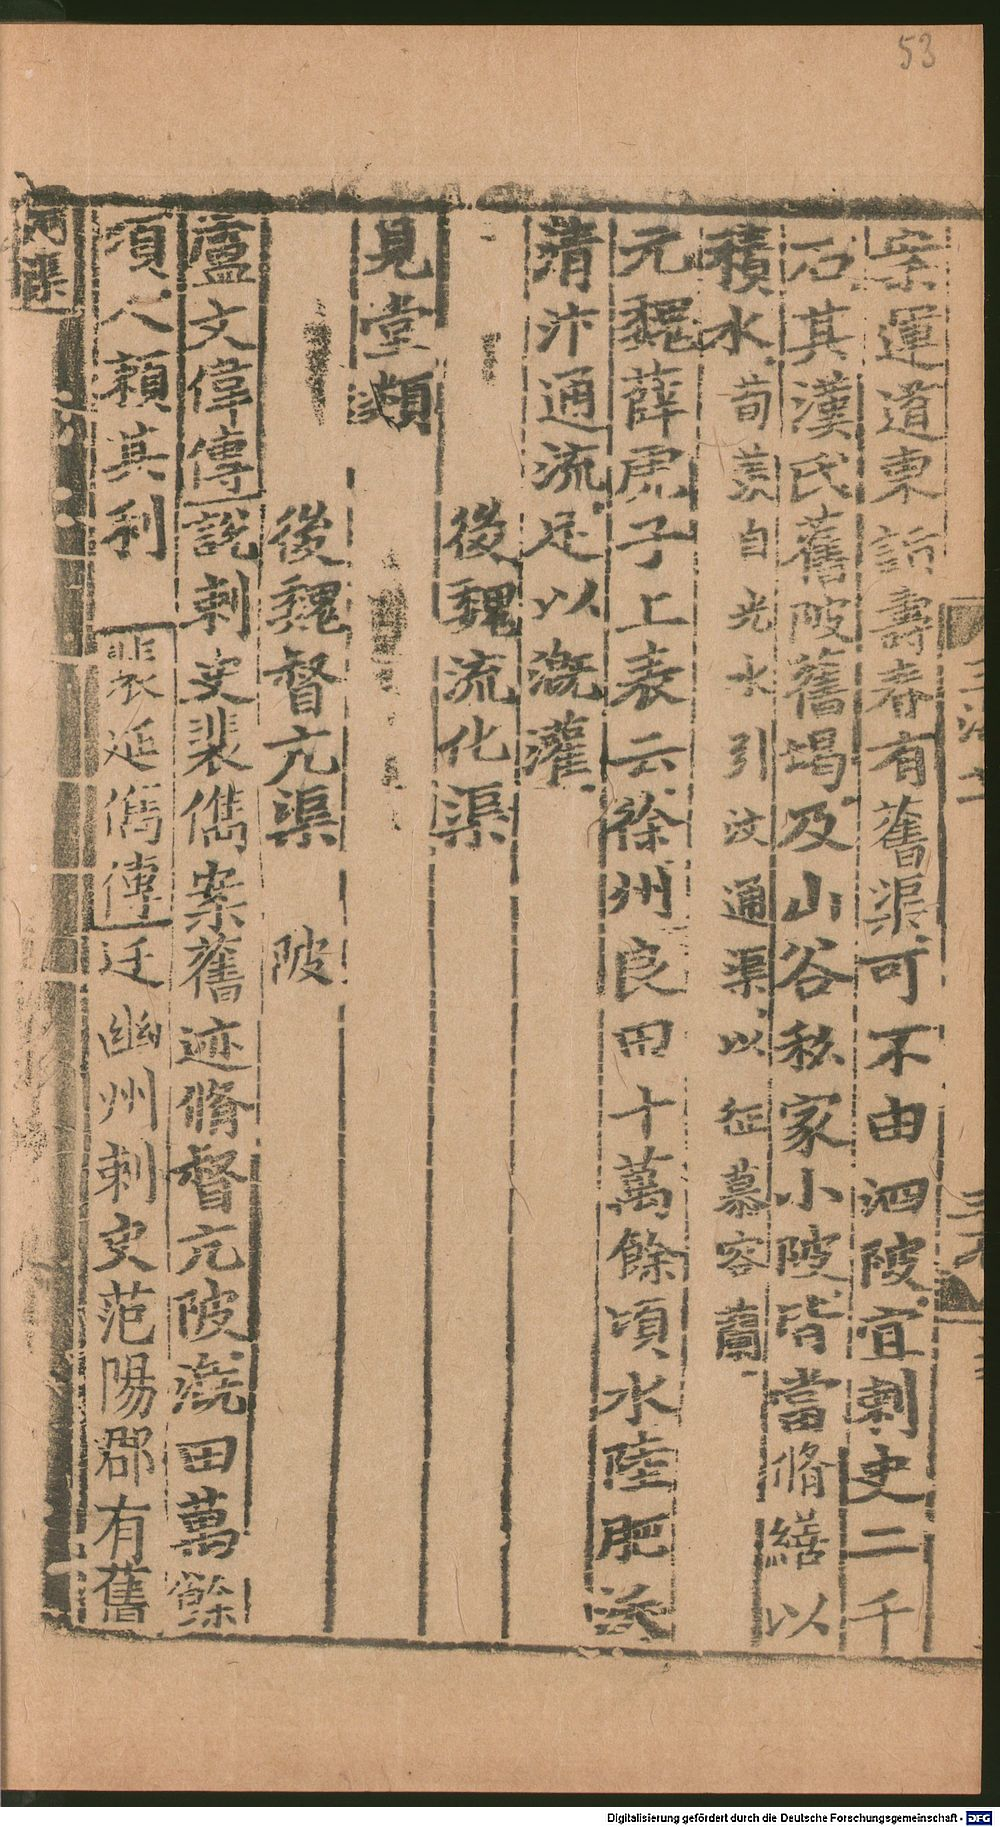 53
案運道東詣壽春有舊渠可不由泗陂宜刺史二千
石其漢氏舊陂舊堨及山谷秘家小陂皆當脩繕以
積水荀羡自光水引汶通渠以征慕容蘭
元魏薛虎子上表云徐州良田十萬餘頃水陸肥沃
清汴通流足以溉灌
後魏流化渠
見堂類
後魏督亢渠 陂
盧文偉傳說刺史裴儁案舊迹脩督亢陂溉田萬餘
頃人賴其利 裴延儁傳迁幽州刺史范陽郡有舊
河渠
Digitalisierung gefördert durch die Deutsche Forschungsgemeinschaft - DFG